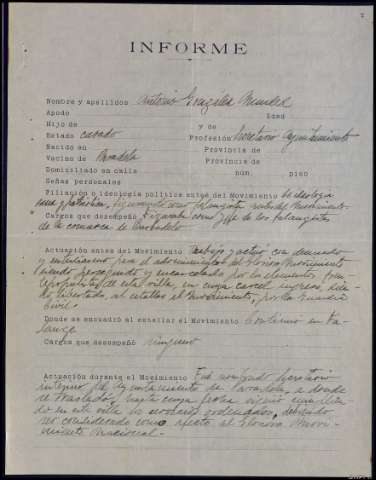 INFORME
Nombre y Apellidos Antonio González Mendez
Apodo Edad
Hijo de y de
Estado casado Profesión Secretario Ayuntamiento
Nacido en Provincia de
Vecino de Paradela Provincia de
Domiciliado en calle núm. piso
Señas personales
Filiación e ideología política antes del Movimiento De ideología
sana y patriótica, figurando como falangista antes del Movimiento.
Cargos que desempeñó Figuraba como Jefe de los falangistas
de la comarca de
Actuación antes del Movimiento Trabajó y actuó con denuedo
y entusiasmo para el advenimiento del Glorioso Movimiento
siendo perseguido y encarcelado por los elementos
de esta villa, en cuya carcel ingresó, siendo
libertado, al estallar el Movimiento, por la Guardia
Civil.
Donde se encuadró al estallar el Movimiento Continuo en Fa-
lange
Cargos que desempeñó ninguno
Actuación durante el Movimiento Fué nombrado Secretario
interino del Ayuntamiento de Paradela, a donde
se trasladó, hasta cuya fecha siguió
do en esta villa los servicios ordenados, debiendo
ser considerado como afecto al Glorioso Movi-
miento Nacional.